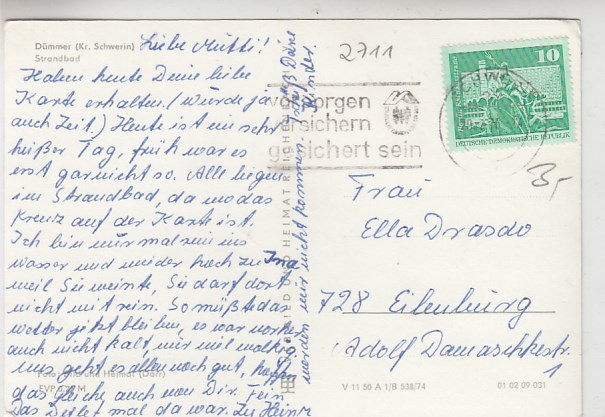 Dümmer (Kr. Schwerin)
Strandbad
Liebe Mutti!
Haben heute Deine liebe
Karte erhalten. (wurde ja
auch Zeit.) Heute ist ein sehr
heißer Tag, früh war es
erst gar nicht so. Alle liegen
im Strandbad, da wo das
Kreuz auf der Karte ist.
Ich bin nur mal rein ins
Wasser und wieder hoch zu Ina
weil Sie weinte, Sie darf dort
nicht mit rein. So müßte das
Wetter jetzt bleiben, es war vorher
auch nicht kalt, nur viel
uns geht es allen noch gut, hoffen
das gleiche auch von Dir. Fein
das Detlef mal da war. Zu Heinz
werden wir nicht kommen,
Deine
Kinder
2711
vorsorgen
versichern
gesichert sein
SCHWERIN
10
DEUTSCHE DEMOKRATISCHE REPUBLIK
3,-
Frau
Ella Drasdo
728 Eilenburg
Adolf Damaschkestr.
1
BILD UND HEIMAT REICHENBACH
Foto: Bild und Heimat (Darr)
V 11 50 A 1/B 538/74
01 02 09 031